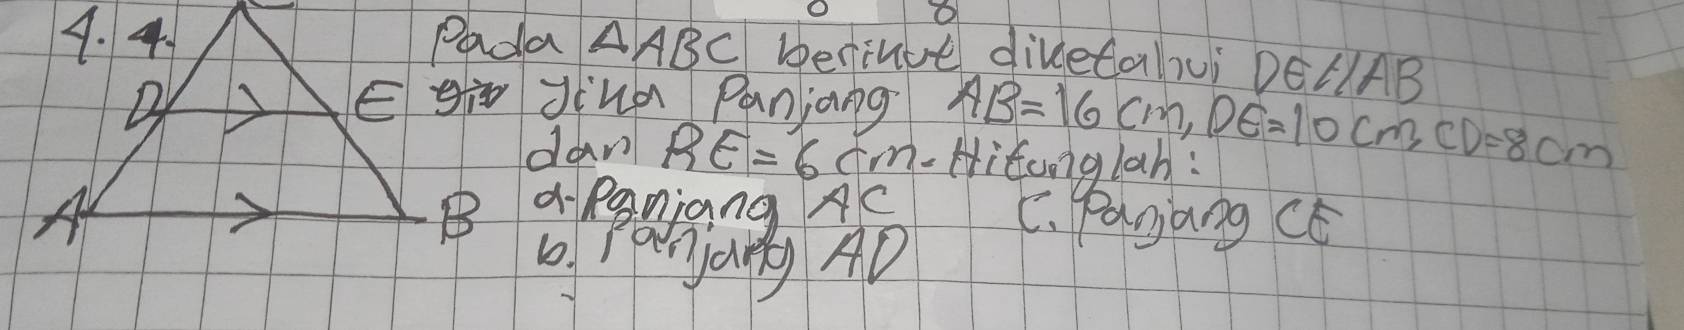 8
4. 4. Pada ΔABC berikut diketahui DE//AB
D E jika Panjang AB=16 cm, DE=10 cm, CD=8 cm
dan BE=6 cm. Hitunglah:
A B a. Panjang AC C. Panjang CE
b. Panjang AD